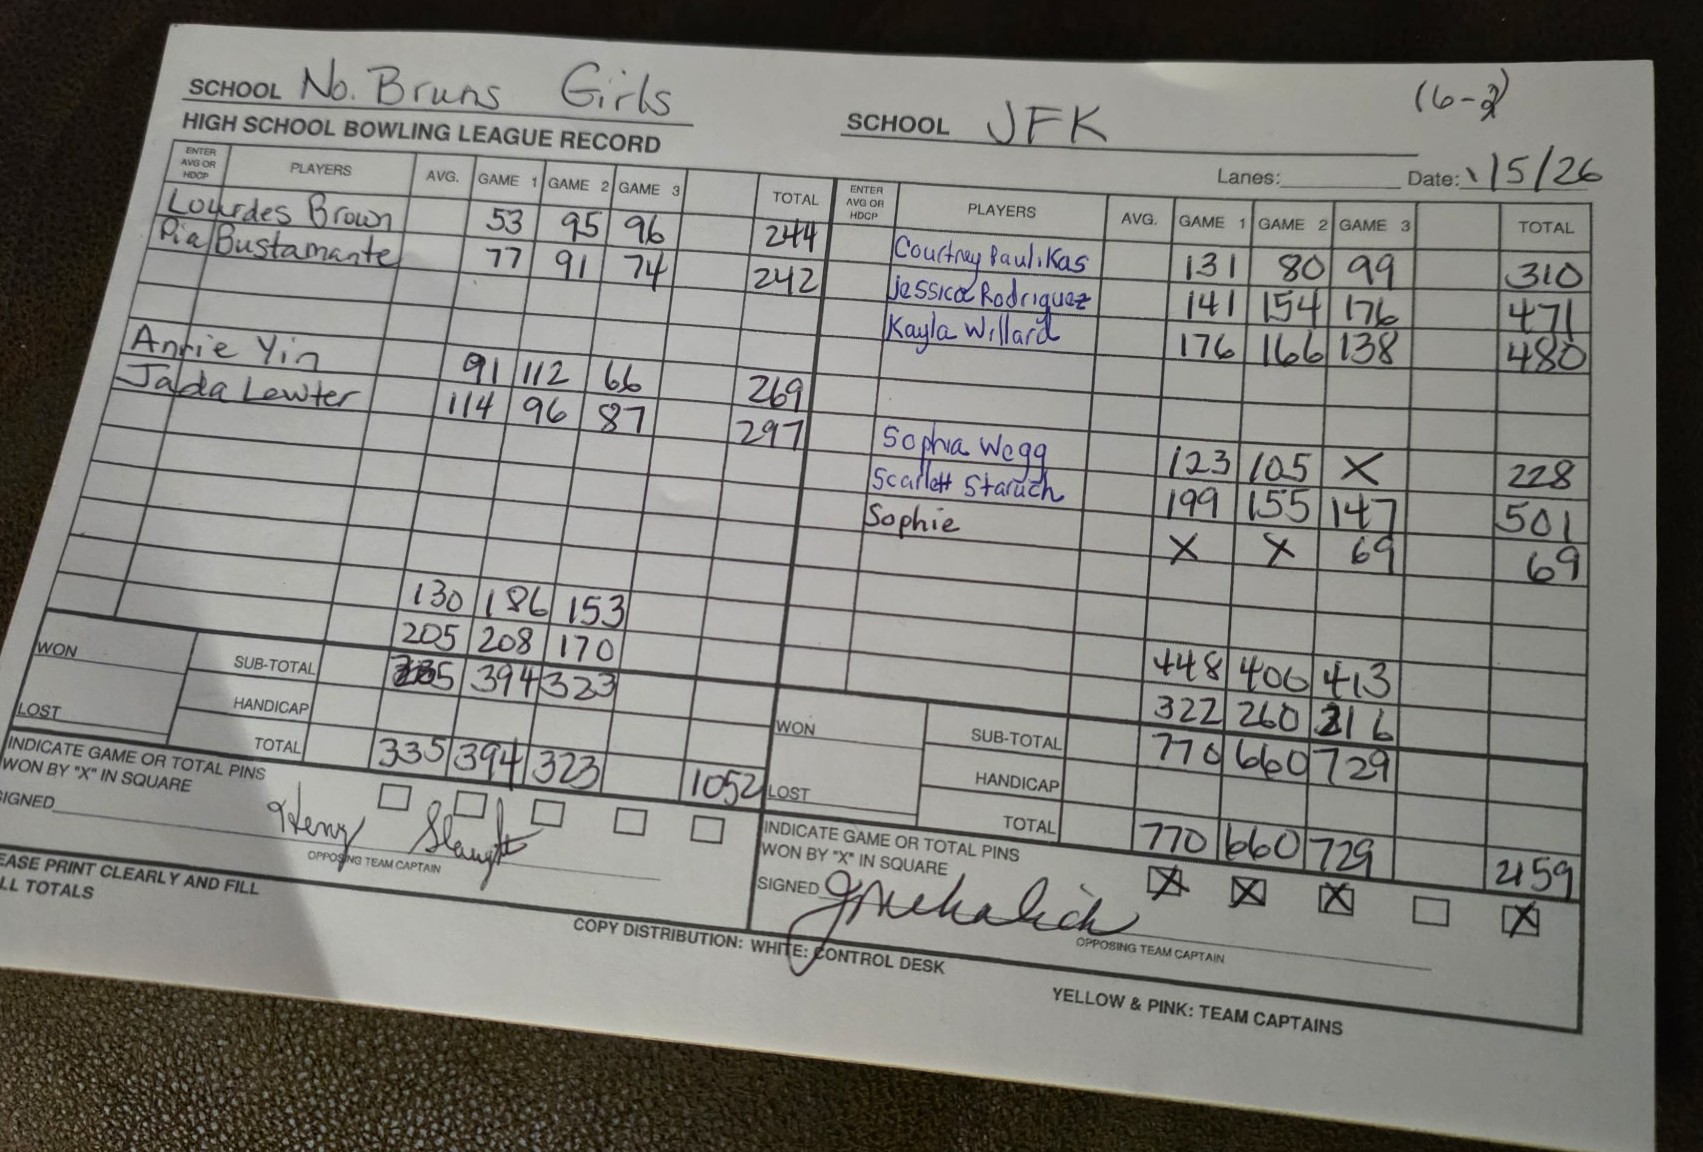 SCHOOL No. Bruns Girls
HIGH SCHOOL BOWLING LEAGUE RECORD
ENTER AVG OR HDCP PLAYERS AVG. GAME 1 GAME 2 GAME 3 TOTAL
Lourdes Brown 53 95 96 244
Pia Bustamante 77 91 74 242
Annie Yin 91 112 66 269
Jada Lewter 114 96 87 297
130 186 153
205 208 170
WON SUB-TOTAL 335 394 323
LOST HANDICAP
TOTAL 335 394 323 1052
INDICATE GAME OR TOTAL PINS
WON BY "X" IN SQUARE
SIGNED Henry
OPPOSING TEAM CAPTAIN
EASE PRINT CLEARLY AND FILL
LL TOTALS
SCHOOL JFK (6-2)
Lanes: Date: 1/5/26
ENTER AVG OR HDCP PLAYERS AVG. GAME 1 GAME 2 GAME 3 TOTAL
Courtney Paulikas 131 80 99 310
Jessica Rodriguez 141 154 176 471
Kayla Willard 176 166 138 480
Sophia Wegg 123 105 X 228
Scarlett Staruch 199 155 147 501
Sophie X X 69 69
448 400 413
322 260 316
WON SUB-TOTAL 770 660 729
HANDICAP
LOST TOTAL 770 660 729 2159
INDICATE GAME OR TOTAL PINS
WON BY "X" IN SQUARE X X X X
SIGNED
OPPOSING TEAM CAPTAIN
COPY DISTRIBUTION: WHITE: CONTROL DESK
YELLOW & PINK: TEAM CAPTAINS